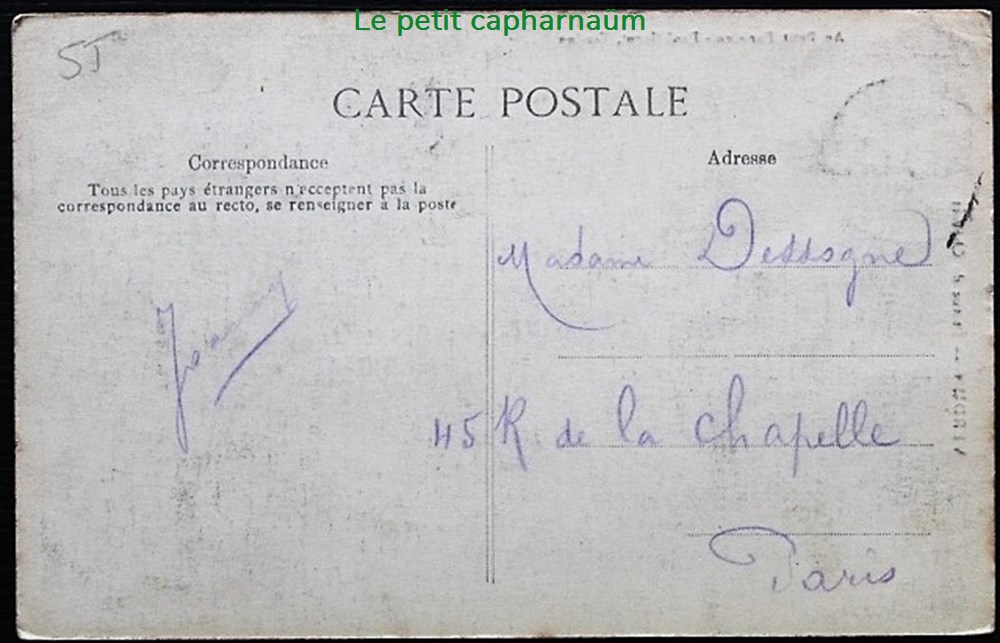 Le petit capharnaüm
5J
CARTE POSTALE
Correspondance
Tous les pays étrangers n'acceptent pas la
correspondance au recto, se renseigner à la poste
Adresse
Madame Dessogne
45 R de la Chapelle
Paris